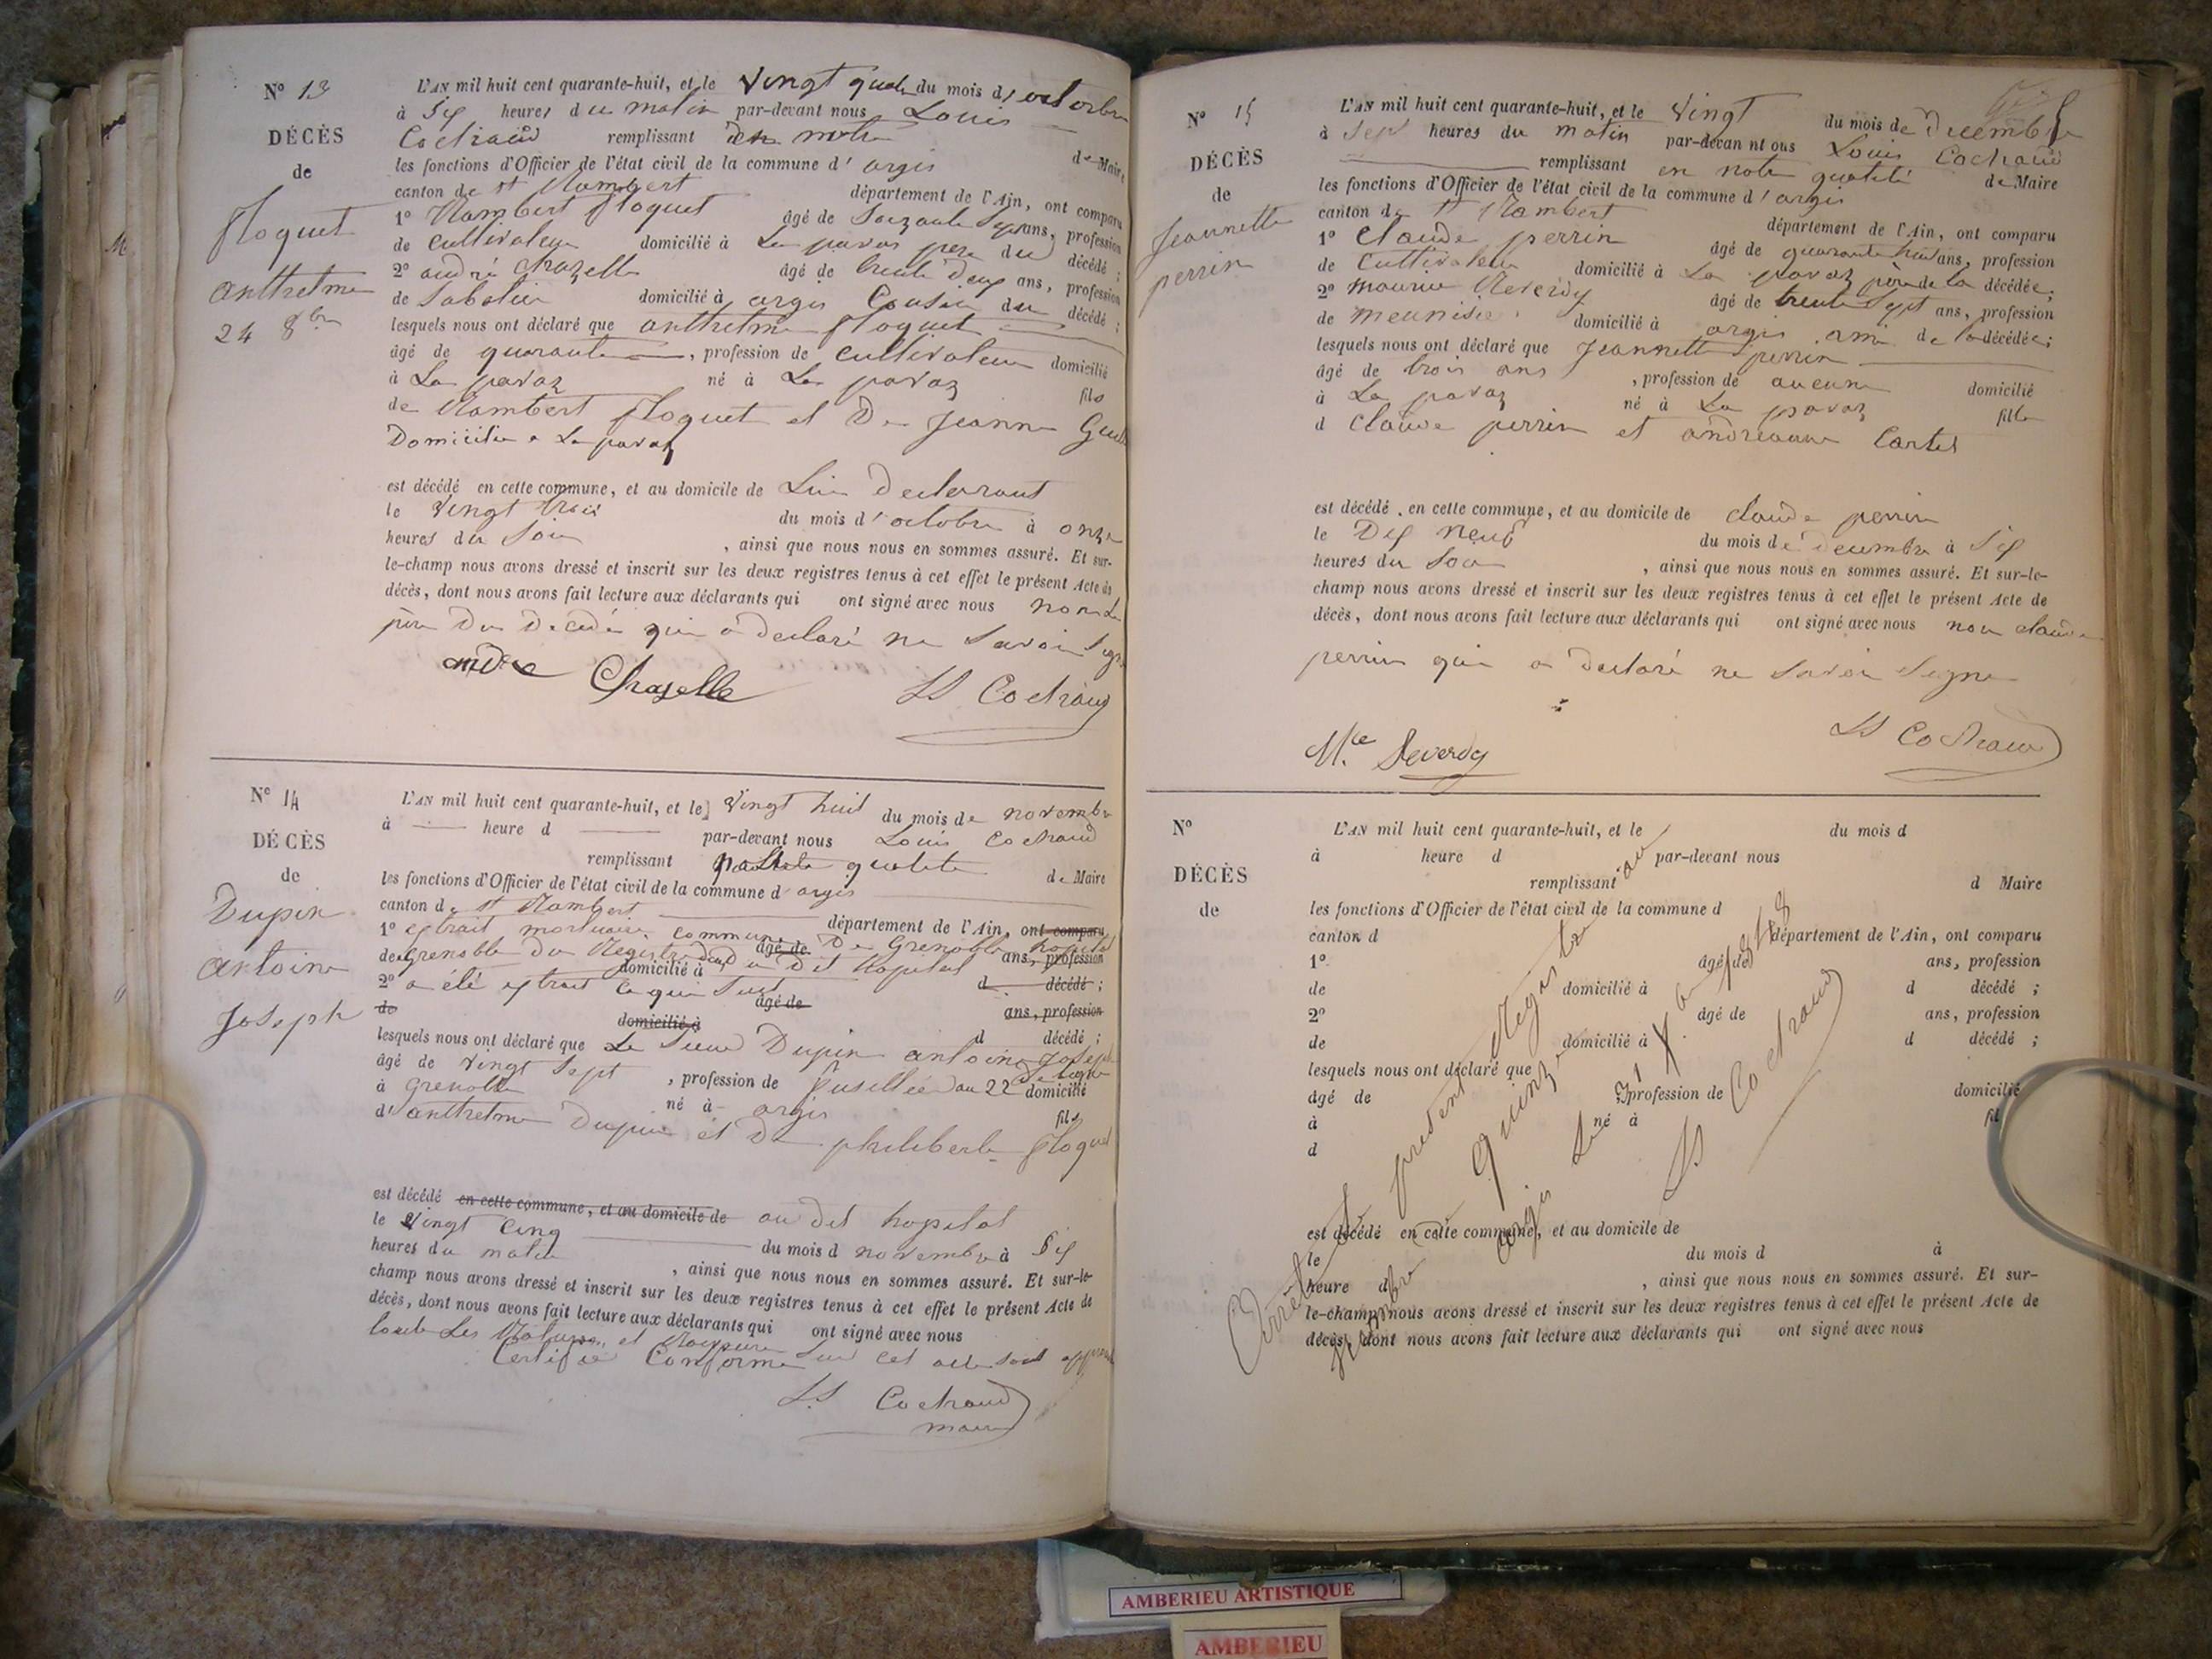 Nº 13
DÉCÈS
de
floquet
anthelme
24 8bre
L'AN mil huit cent quarante-huit, et le vingt quatre du mois d'octobre
à six heures du matin par-devant nous Louis
Cochaud remplissant en notre
de Maire
les fonctions d'Officier de l'état civil de la commune d'argis
canton de st Rambert département de l'Ain, ont comparu
1º Rambert floquet âgé de Soixante Sept ans, profession
de cultivateur domicilié à La pavaz père du décédé ;
2º andré chazelle âgé de trente deux ans, profession
de Sabotier domicilié à argis Cousin du décédé ;
lesquels nous ont déclaré que anthelme floquet
âgé de quarante , profession de cultivateur domicilié
à La pavaz né à La pavaz fils
de Rambert floquet et De Jeanne
Domicilié a La pavaz
est décédé en cette commune, et au domicile de Lun declarant
le vingt trois du mois d'octobre à onze
heures du Soir , ainsi que nous nous en sommes assuré. Et sur-
le-champ nous avons dressé et inscrit sur les deux registres tenus à cet effet le présent Acte de
décès, dont nous avons fait lecture aux déclarants qui ont signé avec nous non Le
père Du Décédé qui a declaré ne Savoir Signe
andré Chazelle LS Cochaud
Nº 14
DÉCÈS
de
Dupin
Antoine
Joseph
L'AN mil huit cent quarante-huit, et le vingt huit du mois de novembre
à heure d par-devant nous Louis Cochaud
remplissant qualité de Maire
les fonctions d'Officier de l'état civil de la commune d'argis
canton de st Rambert département de l'Ain, ont comparu
1º extrait mortuaire commune De Grenoble hopital
de Grenoble du Registre âgé de du dit hopital ans, profession
domicilié à
2º a été extrait ce qui Suit d décédé ;
de âgé de ans, profession
domicilié à d décédé ;
lesquels nous ont déclaré que Le Sieur Dupin antoine Joseph
âgé de vingt Sept , profession de fusillier au 22e de Ligne domicilié
à Grenoble né à argis fils
d'anthelme Dupin et De philiberte floquet
est décédé en cette commune, et au domicile de au dit hopital
le vingt cinq du mois d novembre à Six
heures du matin , ainsi que nous nous en sommes assuré. Et sur-le-
champ nous avons dressé et inscrit sur les deux registres tenus à cet effet le présent Acte de
décès, dont nous avons fait lecture aux déclarants qui ont signé avec nous
toute Les et Sur cet acte sont
Certifié Conforme
LS Cochaud
maire
Nº 15
DÉCÈS
de
Jeannette
perrin
L'AN mil huit cent quarante-huit, et le vingt du mois de decembre
à Sept heures du matin par-devan nt ous Louis Cochaud
remplissant en notre qualité de Maire
les fonctions d'Officier de l'état civil de la commune d'argis
canton de st Rambert département de l'Ain, ont comparu
1º claude perrin âgé de quarante huit ans, profession
de Cultivateur domicilié à La pavaz père de la décédée;
2º maurice Reverdy âgé de trente Sept ans, profession
de meunisié domicilié à argis ami de la décédée;
lesquels nous ont déclaré que Jeannette perrin
âgé de trois ans , profession de aucune domicilié
à La pavaz né à La pavaz fille
d claude perrin et andréanne Cartet
est décédé en cette commune, et au domicile de claude perrin
le Dix neuf du mois de decembre à Six
heures du Soir , ainsi que nous nous en sommes assuré. Et sur-le-
champ nous avons dressé et inscrit sur les deux registres tenus à cet effet le présent Acte de
décès, dont nous avons fait lecture aux déclarants qui ont signé avec nous non claude
perrin qui a declaré ne Savoir Signe
Mce Reverdy
LS Cochaud
Nº
DÉCÈS
de
L'AN mil huit cent quarante-huit, et le du mois d
à heure d par-devant nous
remplissant d Maire
les fonctions d'Officier de l'état civil de la commune d
canton d département de l'Ain, ont comparu
1º âgé de ans, profession
de domicilié à d décédé ;
2º âgé de ans, profession
de domicilié à d décédé ;
lesquels nous ont déclaré que
âgé de , profession de domicilié
à né à fil
d
est décédé en cette commune, et au domicile de
le du mois d à
heure d , ainsi que nous nous en sommes assuré. Et sur-
le-champ nous avons dressé et inscrit sur les deux registres tenus à cet effet le présent Acte de
décès, dont nous avons fait lecture aux déclarants qui ont signé avec nous
Arrêté Le présent Registre au
nombre de quinze
argis Le 31 Xbre 1848
LS Cochaud
AMBERIEU ARTISTIQUE
AMBERIEU